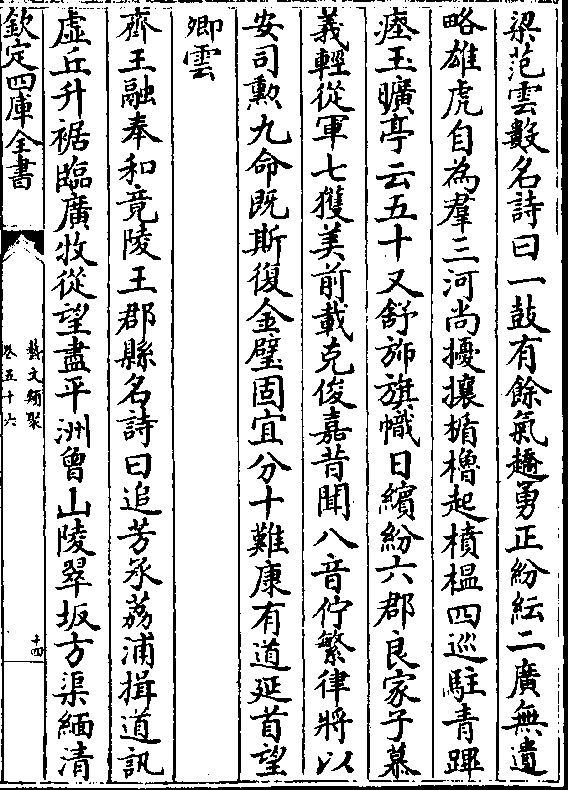 梁范雲數名詩曰一鼓有餘氣趫勇正紛紜二廣無遺
略雄虎自為羣三河尚擾攘楯櫓起槓榅四巡駐青蹕
瘞玉曠亭云五十又舒斾旗幟日繽紛六郡良家子慕
義輕從軍七獲美前載克俊嘉昔聞八音佇繁律將以
安司勲九命既斯復金璧固宜分十難康有道延首望
卿雲
齊王融奉和竟陵王郡縣名詩曰追芳承荔浦揖道訊
虛丘升裾臨廣牧從望盡平洲曾山陵翠坂方渠緬清
欽定四庫全書
藝文類聚
卷五十六
十四